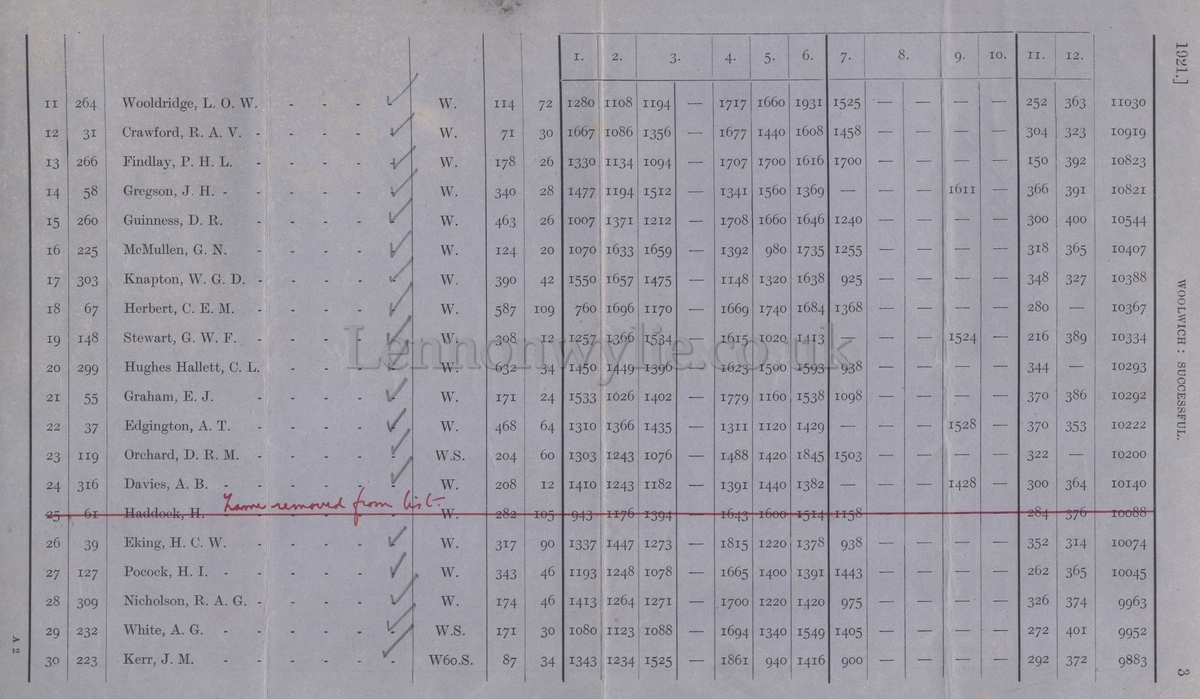 1921.]
1. 2. 3. 4. 5. 6. 7. 8. 9. 10. 11. 12.
11 264 Wooldridge, L. O. W. - - - - W. 114 72 1280 1108 1194 — 1717 1660 1931 1525 — — — — 252 363 11030
12 31 Crawford, R. A. V. - - - - - W. 71 30 1667 1086 1356 — 1677 1440 1608 1458 — — — — 304 323 10919
13 266 Findlay, P. H. L. - - - - - W. 178 26 1330 1134 1094 — 1707 1700 1616 1700 — — — — 150 392 10823
14 58 Gregson, J. H. - - - - - - W. 340 28 1477 1194 1512 — 1341 1560 1369 — — — 1611 — 366 391 10821
15 260 Guinness, D. R. - - - - - W. 463 26 1007 1371 1212 — 1708 1660 1646 1240 — — — — 300 400 10544
16 225 McMullen, G. N. - - - - - W. 124 20 1070 1633 1659 — 1392 980 1735 1255 — — — — 318 365 10407
17 303 Knapton, W. G. D. - - - - - W. 390 42 1550 1657 1475 — 1148 1320 1638 925 — — — — 348 327 10388
18 67 Herbert, C. E. M. - - - - - W. 587 109 760 1696 1170 — 1669 1740 1684 1368 — — — — 280 — 10367
19 148 Stewart, G. W. F. - - - - - W. 308 12 1257 1366 1534 — 1615 1020 1413 — — — 1524 — 216 389 10334
20 299 Hughes Hallett, C. L. - - - - W. 632 34 1450 1449 1396 — 1623 1500 1593 938 — — — — 344 — 10293
21 55 Graham, E. J. - - - - - W. 171 24 1533 1026 1402 — 1779 1160 1538 1098 — — — — 370 386 10292
22 37 Edgington, A. T. - - - - - W. 468 64 1310 1366 1435 — 1311 1120 1429 — — — 1528 — 370 353 10222
23 119 Orchard, D. R. M. - - - - - W.S. 204 60 1303 1243 1076 — 1488 1420 1845 1503 — — — — 322 — 10200
24 316 Davies, A. B. - - - - - - W. 208 12 1410 1243 1182 — 1391 1440 1382 — — — 1428 — 300 364 10140
Name removed from list.
25 61 Haddock, H. W. 282 105 943 1176 1394 — 1643 1600 1514 1158 — — — — 284 376 10088
26 39 Eking, H. C. W. - - - - - W. 317 90 1337 1447 1273 — 1815 1220 1378 938 — — — — 352 314 10074
27 127 Pocock, H. I. - - - - - - W. 343 46 1193 1248 1078 — 1665 1400 1391 1443 — — — — 262 365 10045
28 309 Nicholson, R. A. G. - - - - - W. 174 46 1413 1264 1271 — 1700 1220 1420 975 — — — — 326 374 9963
29 232 White, A. G. - - - - - - W.S. 171 30 1080 1123 1088 — 1694 1340 1549 1405 — — — — 272 401 9952
30 223 Kerr, J. M. - - - - - - W60.S. 87 34 1343 1234 1525 — 1861 940 1416 900 — — — — 292 372 9883
WOOLWICH: SUCCESSFUL.
3
A 2
Lennonwylie.co.uk